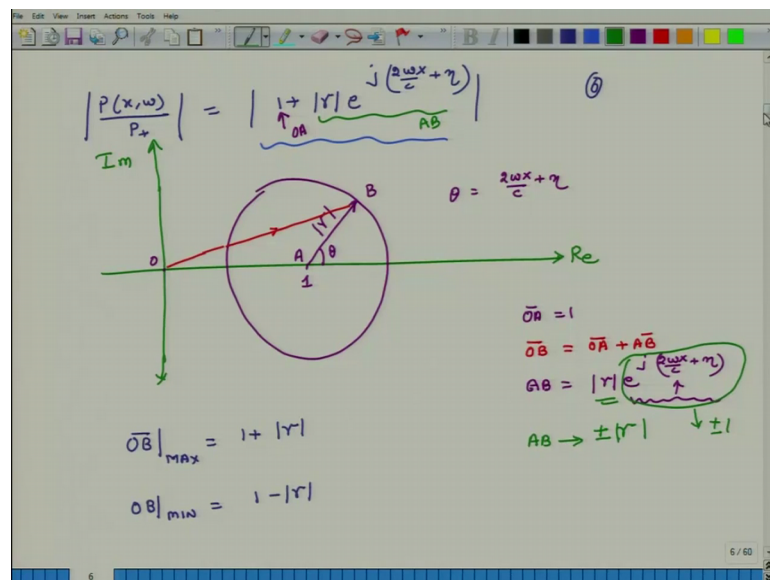 File Edit View Insert Actions Tools Help
|P(x,w)/P+| = |1+ |r| e^j(2wx/c + η)| ⑥
OA AB
Im
B
θ = 2wx/c + η
|r|
O A θ Re
1
OA = 1
OB = OA + AB
AB = |r| e^j(2wx/c + η)
AB → ±|r| ±1
OB|MAX = 1+ |r|
OB|MIN = 1 - |r|
6 / 60
6